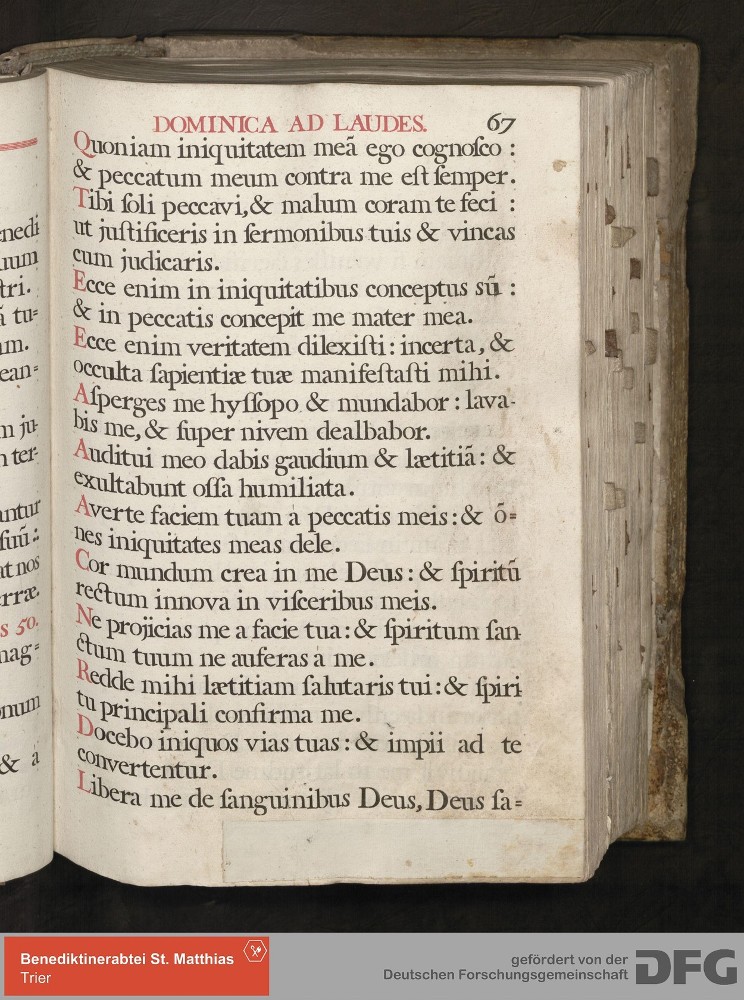 nedi
uum
tri.
ã tu=
m.
ean=
n ju-
n ter-
antur
suũ:
at nos
rræ.
s 50.
nag=
onum
& a
DOMINICA AD LAUDES. 67
Quoniam iniquitatem meã ego cognoſco :
& peccatum meum contra me eſt ſemper.
Tibi ſoli peccavi, & malum coram te feci :
ut juſtificeris in ſermonibus tuis & vincas
cum judicaris.
Ecce enim in iniquitatibus conceptus sũ :
& in peccatis concepit me mater mea.
Ecce enim veritatem dilexiſti : incerta, &
occulta ſapientiæ tuæ manifeſtaſti mihi.
Aſperges me hyſſopo & mundabor : lava-
bis me, & ſuper nivem dealbabor.
Auditui meo dabis gaudium & lætitiã : &
exultabunt oſſa humiliata.
Averte faciem tuam à peccatis meis : & õ=
nes iniquitates meas dele.
Cor mundum crea in me Deus : & ſpiritũ
rectum innova in viſceribus meis.
Ne projicias me a facie tua : & ſpiritum ſan-
ctum tuum ne auferas à me.
Redde mihi lætitiam ſalutaris tui : & ſpiri-
tu principali confirma me.
Docebo iniquos vias tuas : & impii ad te
convertentur.
Libera me de ſanguinibus Deus, Deus ſa=
Benediktinerabtei St. Matthias
Trier
gefördert von der
Deutschen Forschungsgemeinschaft
DFG